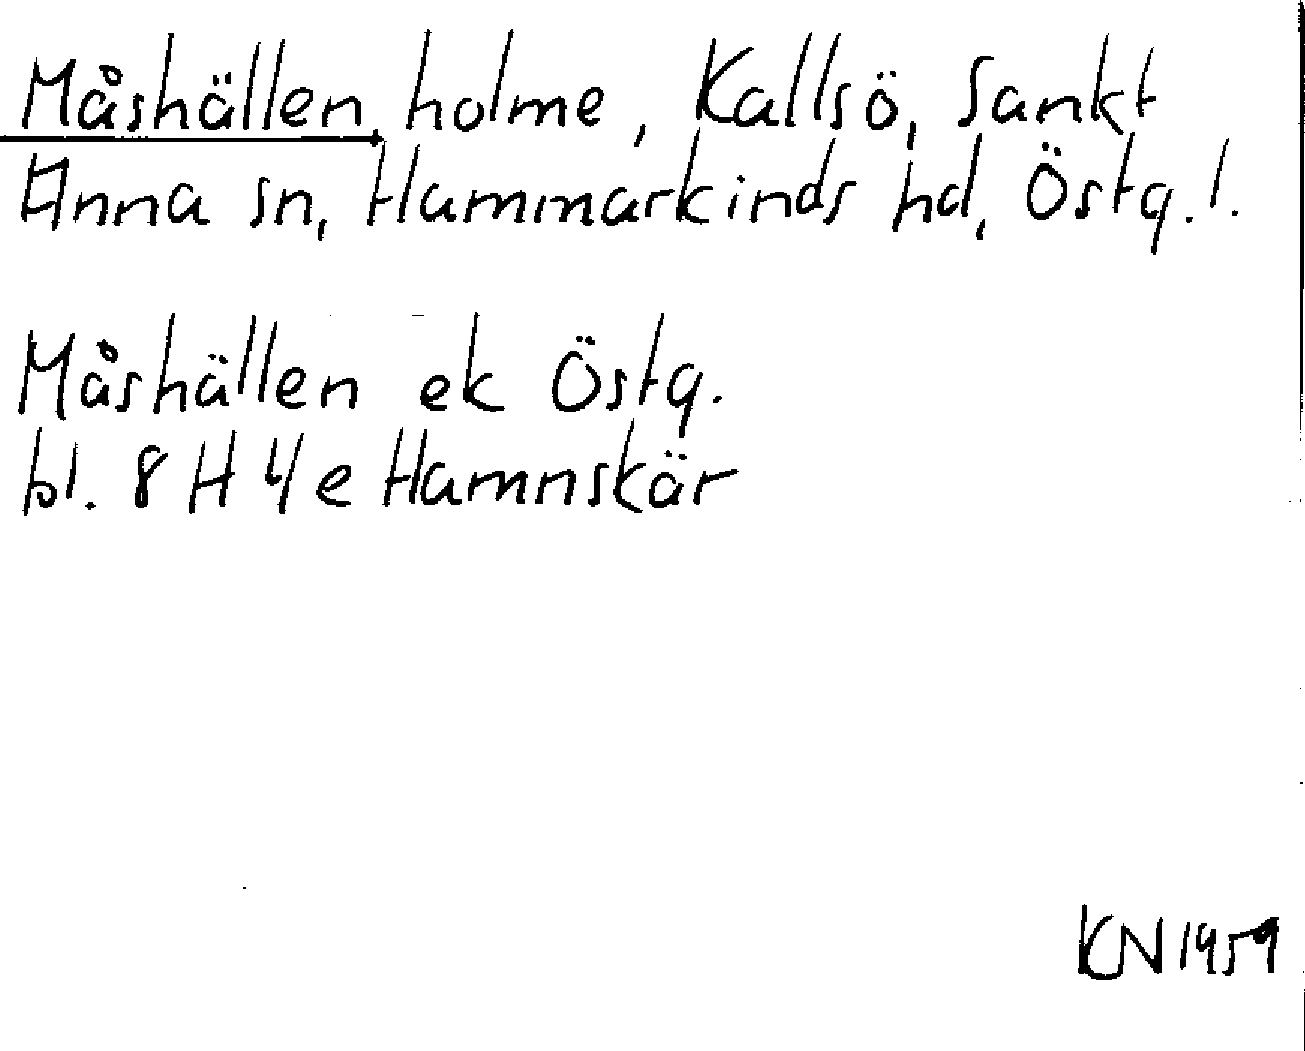 Måshällen holme, Kallsö, Sankt
Anna sn, Hammarkinds hd, Östg.l.
Måshällen ek Östg.
bl. 8 H 4e Hamnskär
KN 1959